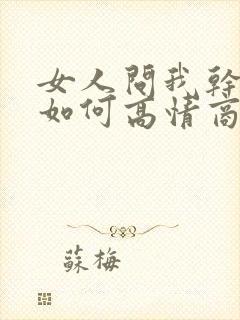 女人問我幹
如何高情商
蘇梅